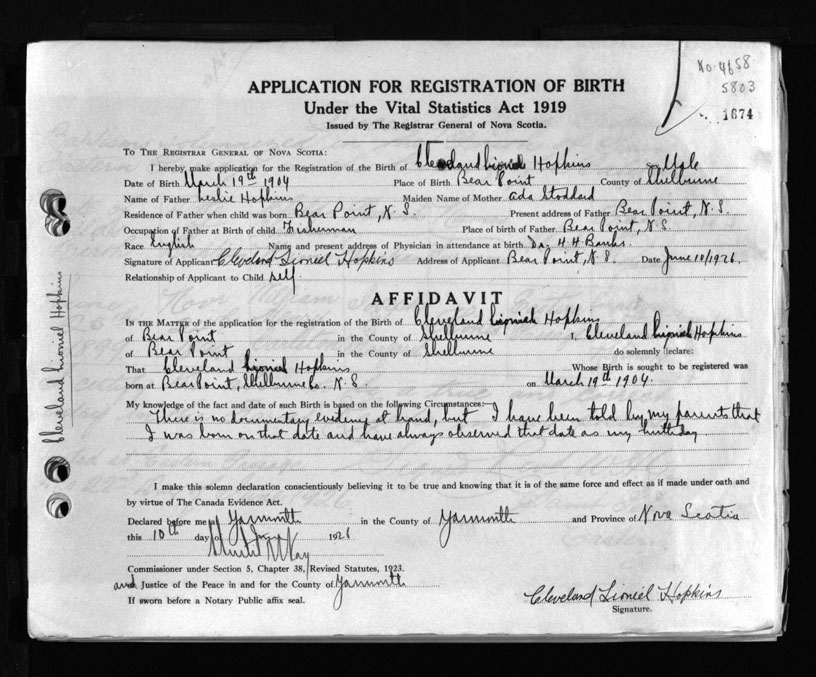 No. 4658
5803
1674
APPLICATION FOR REGISTRATION OF BIRTH
Under the Vital Statistics Act 1919
Issued by The Registrar General of Nova Scotia.
To The Registrar General of Nova Scotia:
I hereby make application for the Registration of the Birth of Cleveland Lioniel Hopkins Male
Date of Birth March 19th 1904 Place of Birth Bear Point County of Shelburne
Name of Father Leslie Hopkins Maiden Name of Mother Ada Stoddard
Residence of Father when child was born Bear Point, N.S. Present address of Father Bear Point, N.S.
Occupation of Father at Birth of child Fisherman Place of birth of Father Bear Point, N.S.
Race English Name and present address of Physician in attendance at birth Dr. H H Banks.
Signature of Applicant Cleveland Lioniel Hopkins Address of Applicant Bear Point, N.S. Date June 10/1926.
Relationship of Applicant to Child self
AFFIDAVIT
In the Matter of the application for the registration of the Birth of Cleveland Lioniel Hopkins
of Bear Point in the County of Shelburne I, Cleveland Lioniel Hopkins
of Bear Point in the County of Shelburne do solemnly declare:
That Cleveland Lioniel Hopkins Whose Birth is sought to be registered was
born at Bear Point, Shelburne Co. N.S. on March 19th 1904.
My knowledge of the fact and date of such Birth is based on the following Circumstances:—
There is no documentary evidence at hand, but I have been told by my parents that
I was born on that date and have always observed that date as my birthday
I make this solemn declaration conscientiously believing it to be true and knowing that it is of the same force and effect as if made under oath and
by virtue of The Canada Evidence Act.
Declared before me Yarmouth in the County of Yarmouth and Province of Nova Scotia
this 10th day of June 1926
Commissioner under Section 5, Chapter 38, Revised Statutes, 1923.
and Justice of the Peace in and for the County of Yarmouth
If sworn before a Notary Public affix seal.
Cleveland Lioniel Hopkins
Signature.
Cleveland Lioniel Hopkins